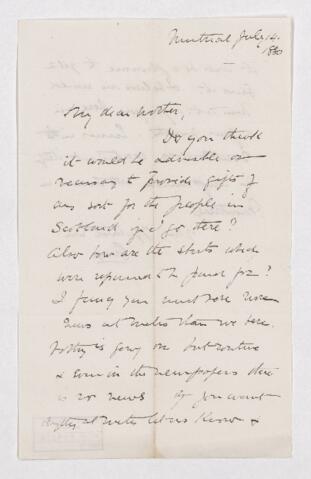 Montreal July 14.
1880
My dear Mother,
Do you think
it would be advisable or
necessary to provide gifts of
any sort for the people in
Scotland if I go there?
Also how are the shirts which
were
I fancy you must have more
news at Metis than we here.
is going on but routine
& even in the newspapers there
is no news If you want
anything at Metis let us know &